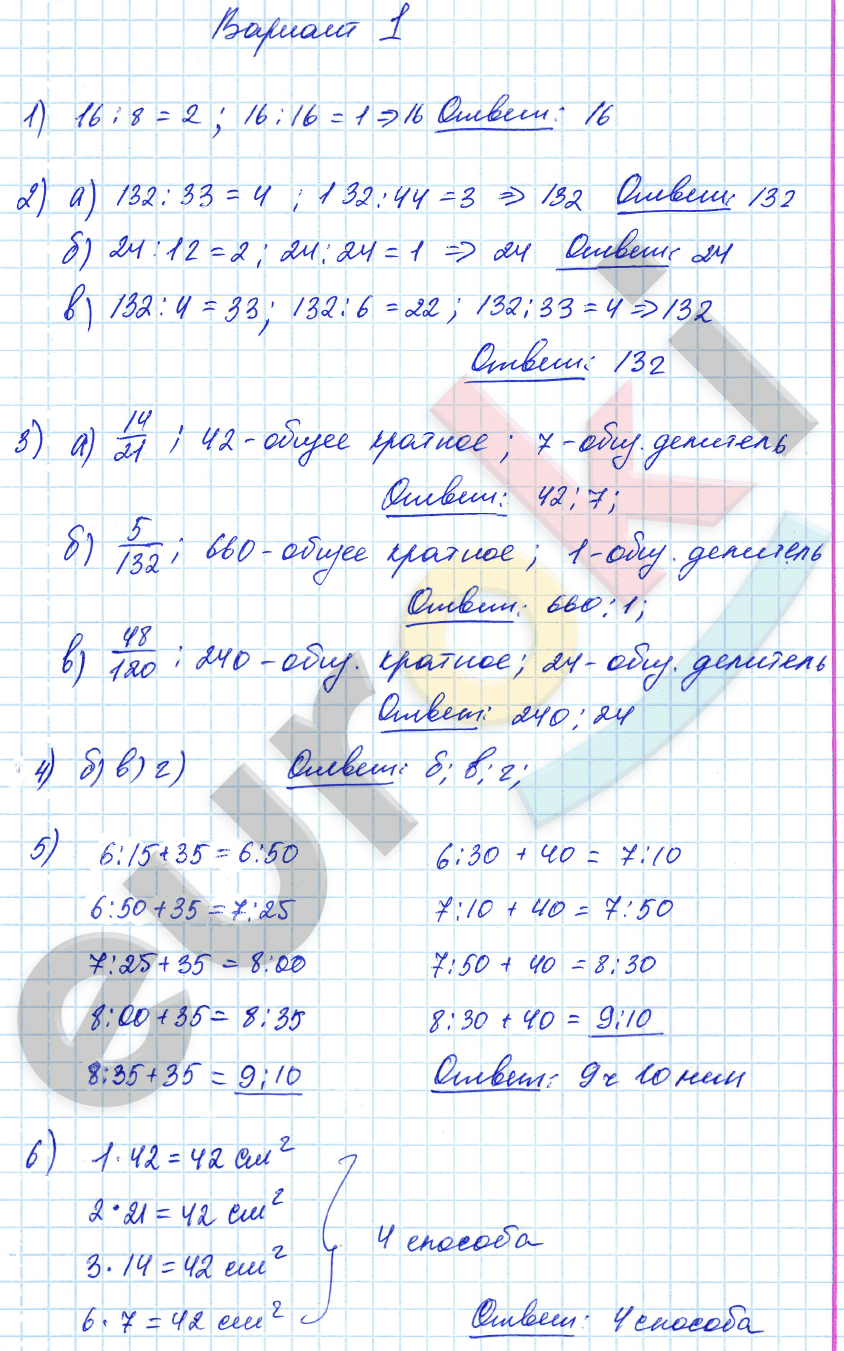 Вариант 1
1) 16 : 8 = 2 ; 16 : 16 = 1 ⇒ 16 Ответ: 16
2) а) 132 : 33 = 4 ; 132 : 44 = 3 ⇒ 132 Ответ: 132
б) 24 : 12 = 2 ; 24 : 24 = 1 ⇒ 24 Ответ: 24
в) 132 : 4 = 33 ; 132 : 6 = 22 ; 132 : 33 = 4 ⇒ 132
Ответ: 132
3) а) 14/21 ; 42 - общее кратное ; 7 - общ. делитель
Ответ: 42 ; 7 ;
б) 5/132 ; 660 - общее кратное ; 1 - общ. делитель
Ответ: 660 ; 1 ;
в) 48/120 ; 240 - общ. кратное ; 24 - общ. делитель
Ответ: 240 ; 24
4) б) в) г) Ответ: б ; в ; г ;
5) 6:15 + 35 = 6:50 6:30 + 40 = 7:10
6:50 + 35 = 7:25 7:10 + 40 = 7:50
7:25 + 35 = 8:00 7:50 + 40 = 8:30
8:00 + 35 = 8:35 8:30 + 40 = 9:10
8:35 + 35 = 9:10 Ответ: 9 ч 10 мин
6) 1 · 42 = 42 см²
2 · 21 = 42 см²
4 способа
3 · 14 = 42 см²
6 · 7 = 42 см² Ответ: 4 способа
euroki